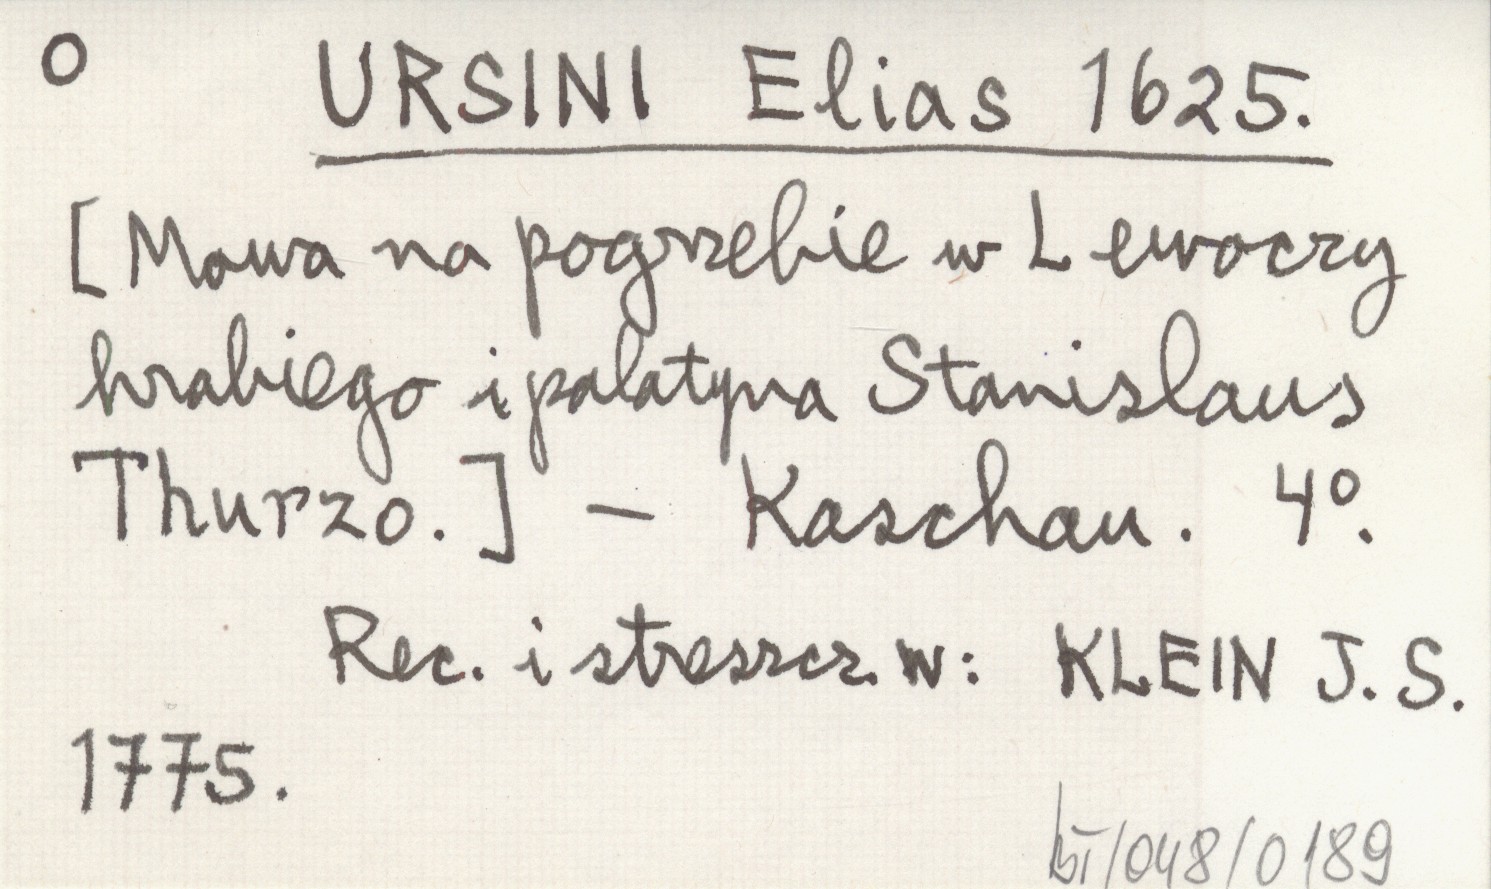 O URSINI Elias 1625.
[Mowa na pogrzebie w Lewoczy
hrabiego i palatyna Stanislaus
Thurzo.] – Kaschau. 4º.
Rec. i streszcz. w: KLEIN J. S.
1775.
/048/0189